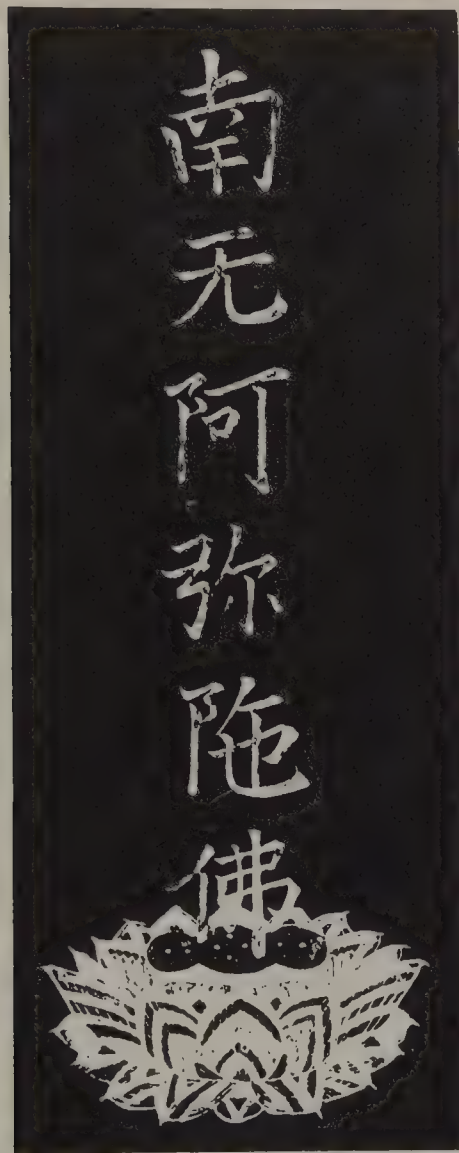 南无阿弥陁佛